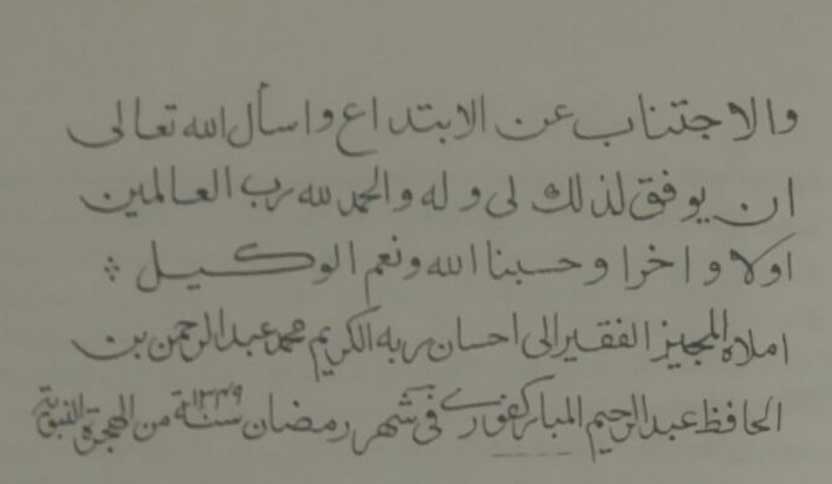 والاجتناب عن الابتداع واسأل الله تعالى
ان يوفق لذلك لى وله والحمد لله رب العالمين
اولا واخرا وحسبنا الله ونعم الوكيل
املاه المجيز الفقير الى احسان ربه الكريم محمد عبد الرحمن بن
الحافظ عبد الرحيم المباركفورى فى شهر رمضان سنة ١٣٤٩ من الهجرة النبوية